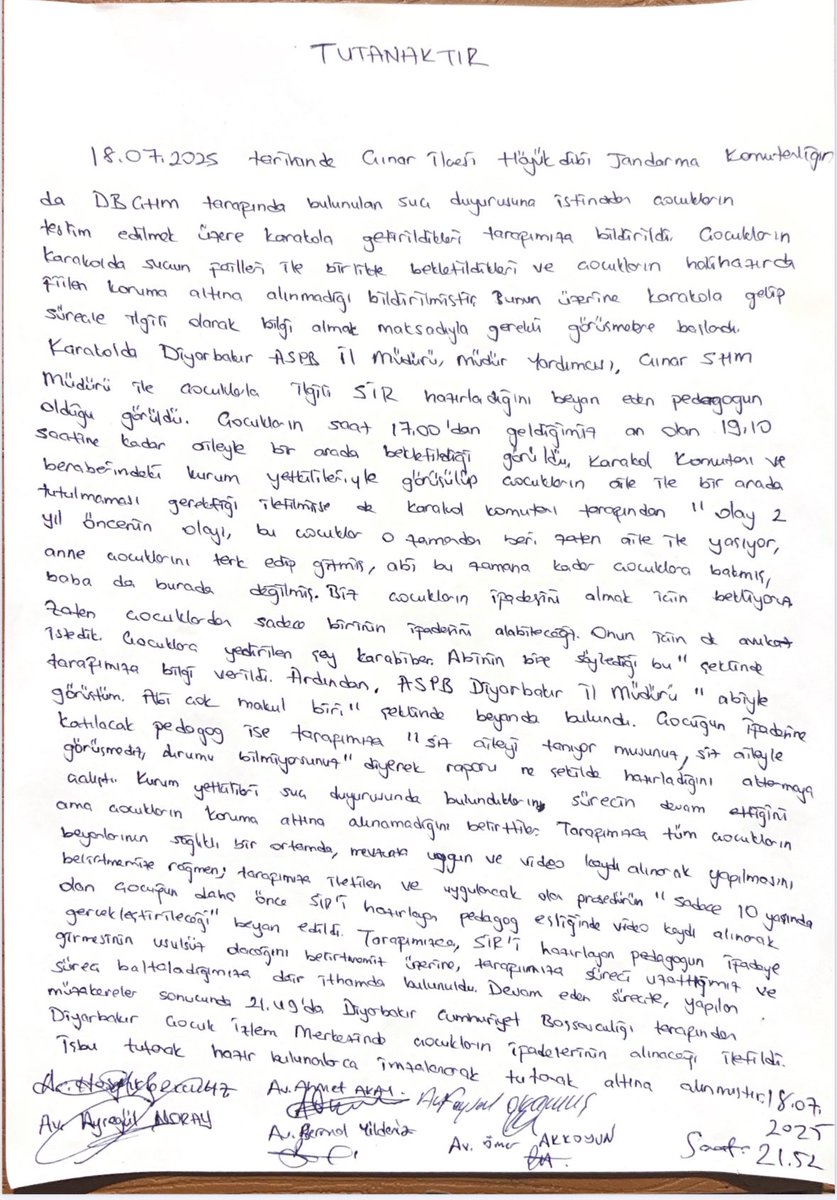 TUTANAKTIR
18.07.2025 tarihinde Çınar İlçesi Höyükdibi Jandarma Komutanlığın
da DBÇHM tarafında bulunulan suç duyurusuna istinaden çocukların
teslim edilmek üzere karakola getirildikleri tarafımıza bildirildi. Çocukların
karakolda suçun failleri ile birlikte bekletildikleri ve çocukların halihazırda
fiilen koruma altına alınmadığı bildirilmiştir. Bunun üzerine karakola gelip
süreçle ilgili olarak bilgi almak maksadıyla gerekli görüşmelere başladı.
Karakolda Diyarbakır ASPB İl Müdürü, Müdür Yardımcısı, Çınar SHM
Müdürü ile çocuklarla ilgili SİR hazırladığını beyan eden pedagogun
olduğu görüldü. Çocukların saat 17.00'dan geldiğimiz an olan 19.10
saatine kadar aileyle bir arada bekletildiği görüldü, Karakol Komutanı ve
beraberindeki kurum yetkilileriyle görüşülüp çocukların aile ile bir arada
tutulmaması gerektiği iletilmişse de karakol komutanı tarafından "olay 2
yıl öncenin olayı, bu çocuklar o zamandan beri zaten aile ile yaşıyor,
anne çocuklarını terk edip gitmiş, abi bu zamana kadar çocuklara bakmış,
baba da burada değilmiş. Biz çocukların ifadesini almak için bekliyoruz
zaten çocuklardan sadece birinin ifadesini alabileceğiz. Onun için de avukat
istedik. Çocuklara yedirilen şey karabiber. Abinin bize söylediği bu" şeklinde
tarafımıza bilgi verildi. Ardından, ASPB Diyarbakır İl Müdürü "abiyle
görüştüm. Abi çok makul biri." şeklinde beyanda bulundu. Çocuğun ifadesine
katılacak pedagog ise tarafımıza "siz aileyi tanıyor musunuz, siz aileyle
görüşmediniz, durumu bilmiyorsunuz" diyerek raporu ne şekilde hazırladığını aktarmaya
çalıştı. Kurum yetkilileri suç duyurusunda bulunduklarını, sürecin devam ettiğini
ama çocukların koruma altına alınamadığını belirttiler. Tarafımızca tüm çocukların
beyanlarının sağlıklı bir ortamda, mevzuata uygun ve video kaydı alınarak yapılmasını
belirtmemize rağmen; tarafımıza iletilen ve uygulanacak olan prosedürün "sadece 10 yaşında
olan çocuğun daha önce SİR'i hazırlayan pedagog eşliğinde video kaydı alınarak
gerçekleştirileceği" beyan edildi. Tarafımızca, SİR'i hazırlayan pedagogun ifadeye
girmesinin usulsüz olacağını belirtmemiz üzerine, tarafımıza süreci uzattığımız ve
süreci baltaladığımıza dair ithamda bulunuldu. Devam eden süreçte, yapılan
müzakereler sonucunda 21.49'da Diyarbakır Cumhuriyet Başsavcılığı tarafından
Diyarbakır Çocuk İzlem Merkezinde çocukların ifadelerinin alınacağı iletildi.
İşbu tutanak hazır bulunanlarca imzalanarak tutanak altına alınmıştır. 18.07.
2025
Saat: 21.52
Av. Ahmet AKAY
Av.
Av. NORAY
Av. Berzal Yildeniz
Av. Ömer AKKOYUN